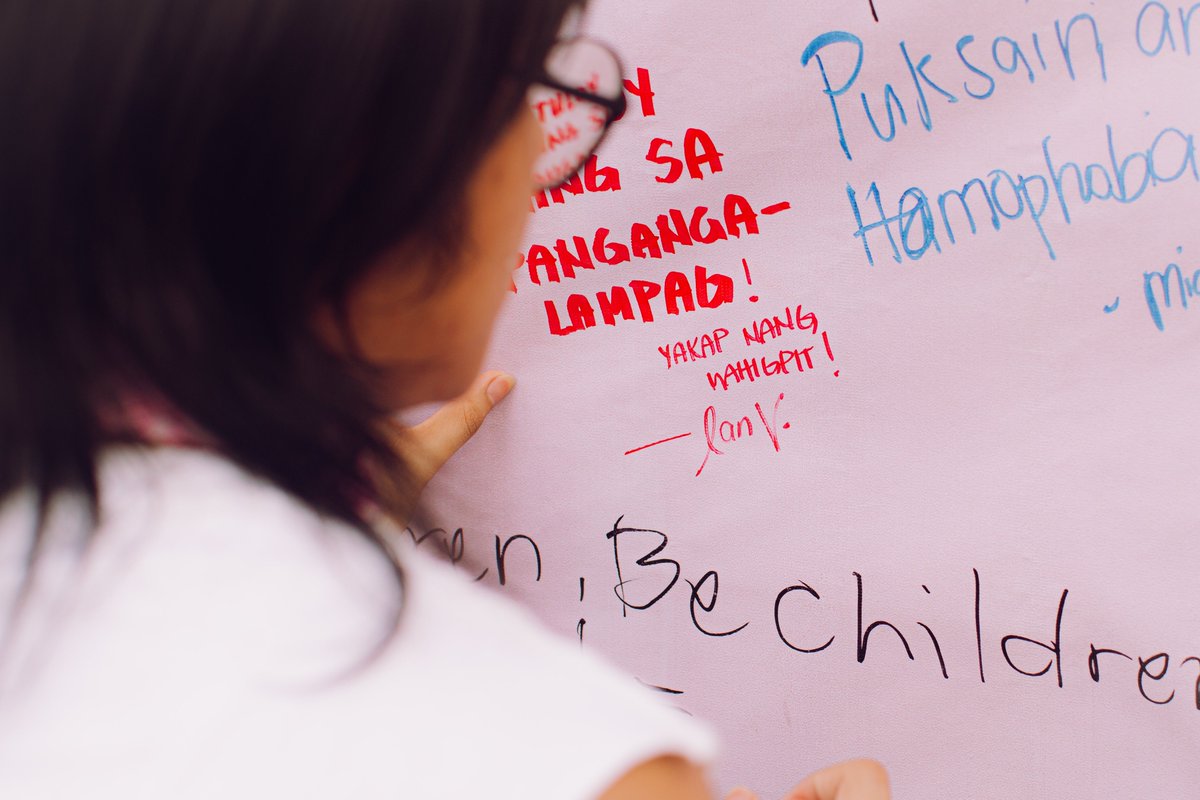 SA
PANGANGA-
LAMPAG!
YAKAP NANG
MAHIGPIT!
— Ian V.
Puksain an
Hamophaba
ren, Be children